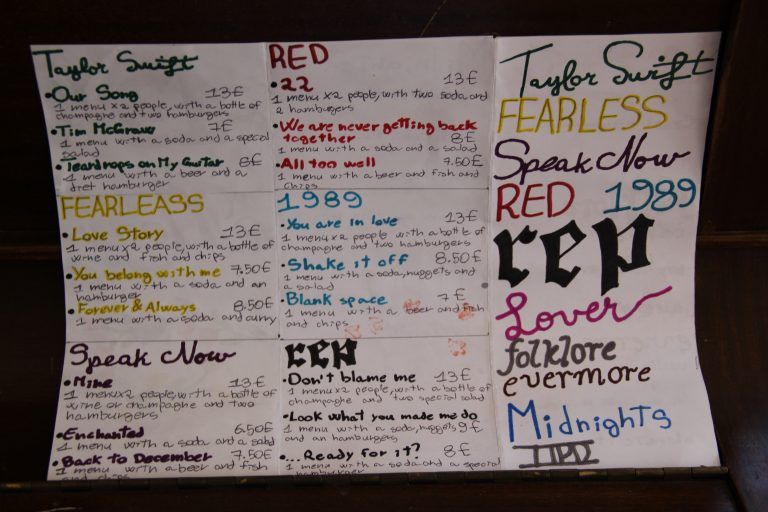 Taylor Swift
• Our Song 13€
1 menu x2 people, with a bottle of
champagne and two hamburgers
• Tim McGraw 7€
1 menu with a soda and a special
salad
• Teardrops on My Guitar 8€
1 menu with a beer and a
diet hamburger
FEARLEASS
• Love Story 13€
1 menu x2 people, with a bottle of
wine and fish and chips
• You belong with me 7.50€
1 menu with a soda and an
hamburger
• Forever & Always 8.50€
1 menu with a soda and curry
Speak Now
• Mine 13€
1 menu x2 people, with a bottle of
wine or champagne and two
hamburgers
• Enchanted 6.50€
1 menu with a soda and a salad
• Back to December 7.50€
1 menu with a beer and fish
and chips
RED
• 22 13€
1 menu x2 people, with two soda and
2 hamburgers
• We are never getting back
together 8€
1 menu with a soda and a salad
• All too well 7.50€
1 menu with a beer and fish and
chips
1989
• You are in love 13€
1 menu x2 people with a bottle of
champagne and two hamburgers
• Shake it off 8.50€
1 menu with a soda, nuggets and
a salad
• Blank space 7€
1 menu with a beer and fish
and chips
rep
• Don't blame me 13€
1 menu x2 people, with a bottle of
champagne and two special salad
• Look what you made me do
1 menu with a soda, nuggets 9€
and an hamburgers
• ...Ready for it? 8€
1 menu with a soda and a special
hamburger
Taylor Swift
FEARLESS
Speak Now
RED 1989
rep
Lover
folklore
evermore
Midnights